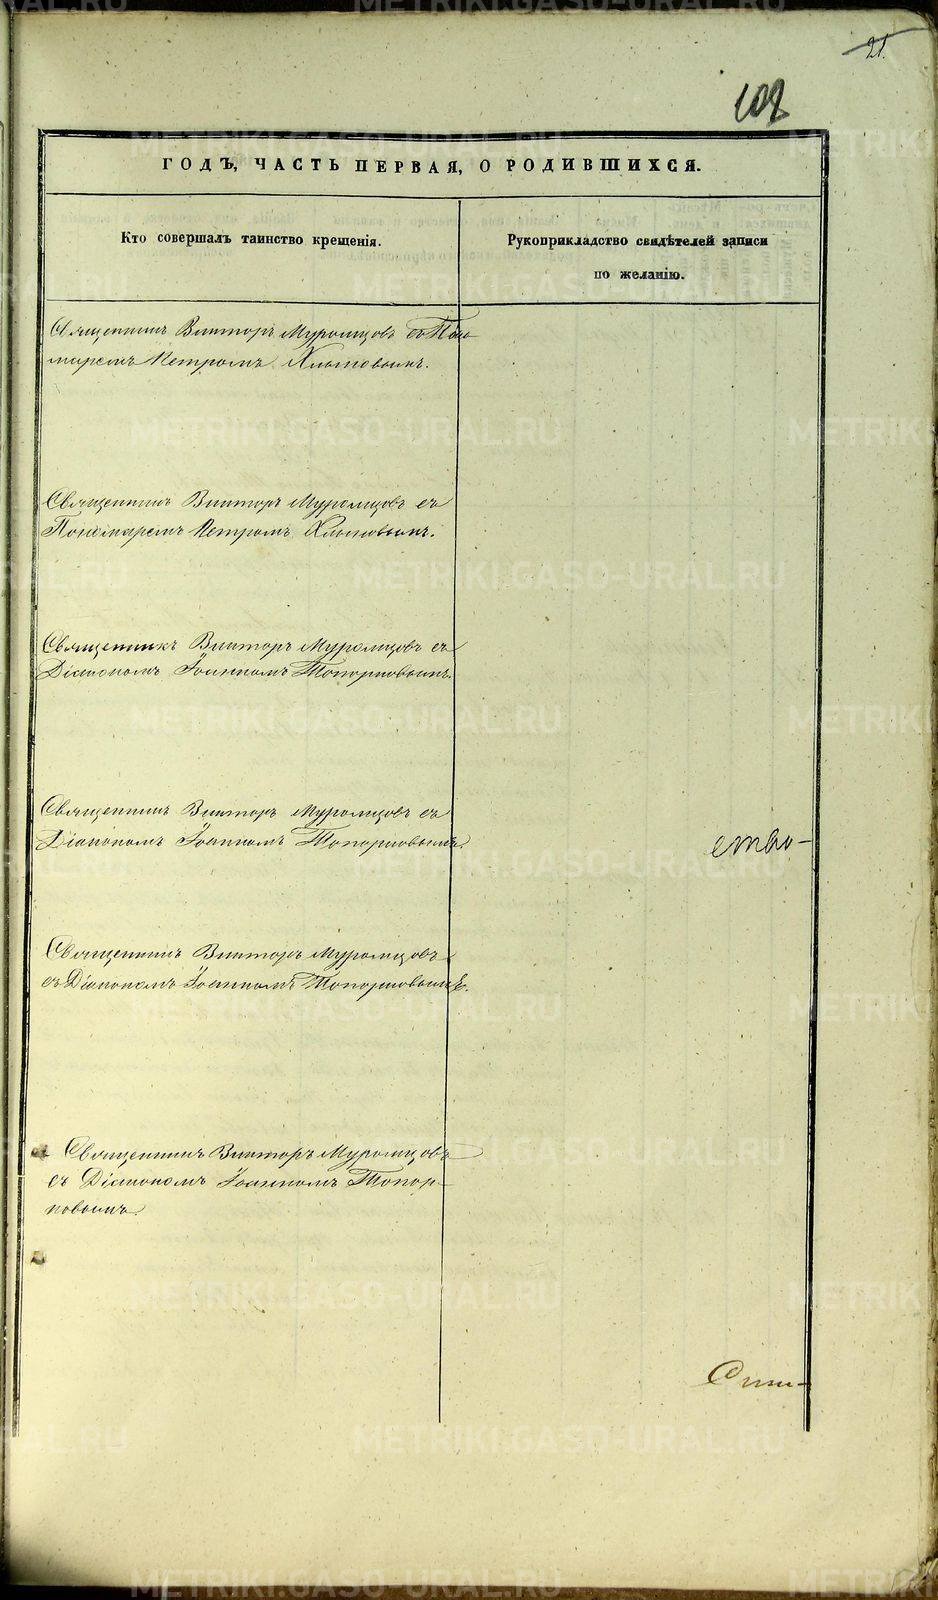 21.
108
ГОДЪ, ЧАСТЬ ПЕРВАЯ, О РОДИВШИХСЯ.
Кто совершалъ таинство крещенія.
Рукоприкладство свидѣтелей записи
по желанію.
Священникъ Викторъ Муромцовъ съ Поно
маремъ Петромъ Хлыновымъ.
Священникъ Викторъ Муромцовъ съ
Пономаремъ Петромъ Хлыновымъ.
Священникъ Викторъ Муромцовъ съ
Діакономъ Іоанномъ Топорковымъ.
Священникъ Викторъ Муромцовъ съ
Діакономъ Іоанномъ Топорковымъ.
ство-
Священникъ Викторъ Муромцовъ
съ Діакономъ Іоанномъ Топорковымъ.
Священникъ Викторъ Муромцовъ
съ Діакономъ Іоанномъ Топор-
ковымъ.
METRIKI.GASO-URAL.RU